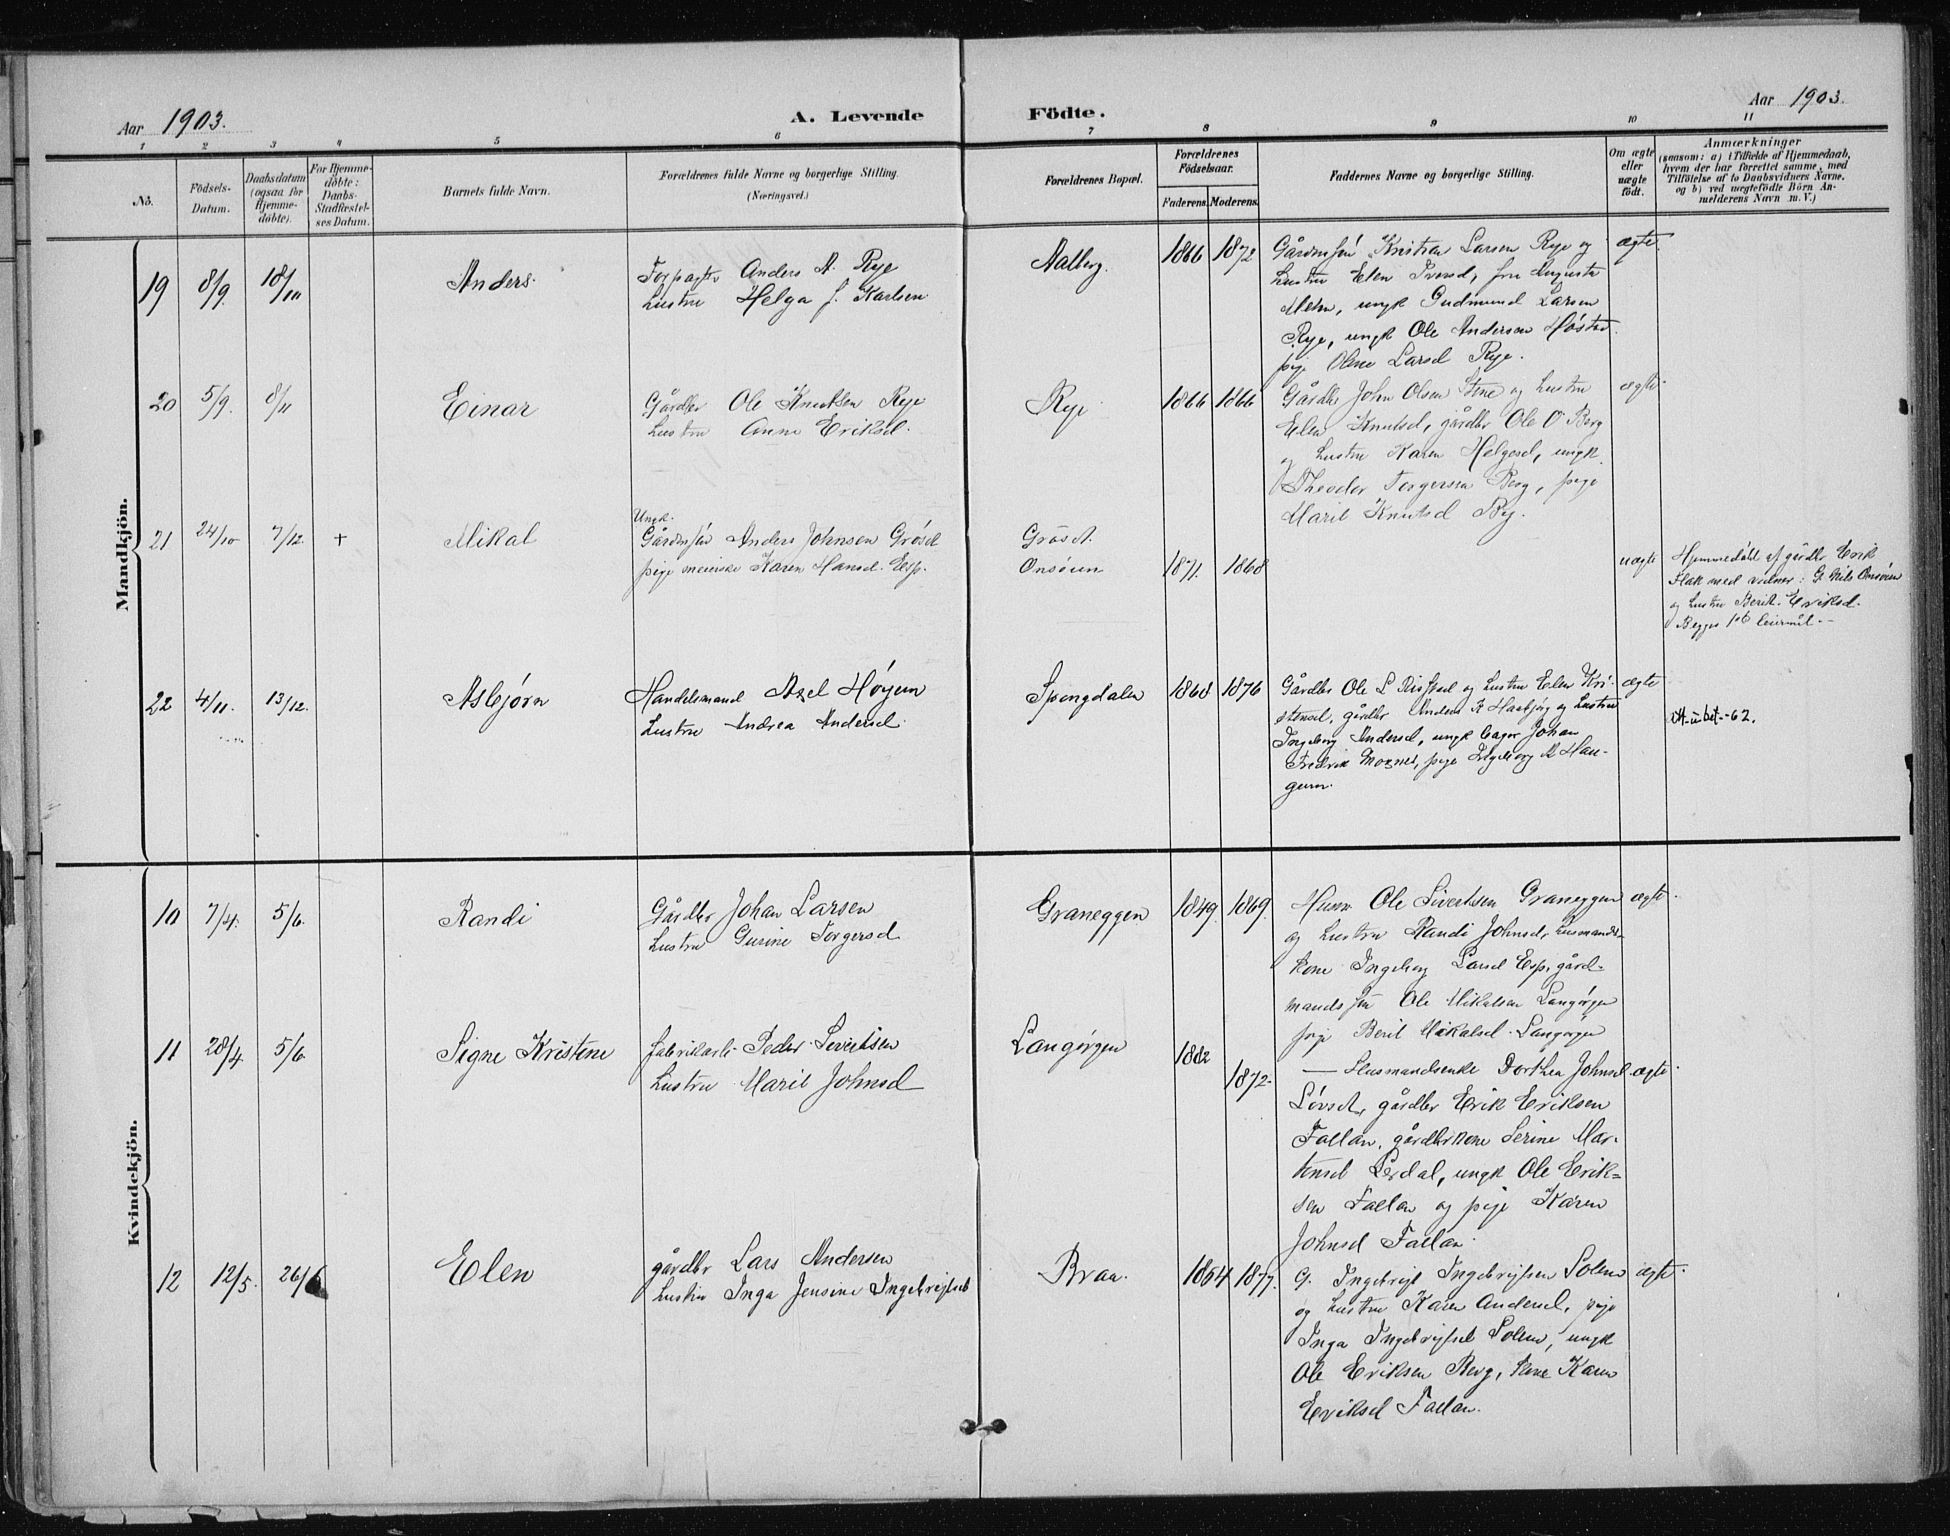 Aar 1903. A. Levende Födte. Aar 1903.
1 2 3 4 5 6 7 8 9 10 11
No. Födsels-Datum. Daabsdatum (ogsaa for Hjemmedöbte). For Hjemmedöbte: Daabs-Stadfæstelses Datum. Barnets fulde Navn. Forældrenes fulde Navne og borgerlige Stilling. (Næringsvei.) Forældrenes Bopæl. Forældrenes Födselsaar. Faderens. Moderens. Faddernes Navne og borgerlige Stilling. Om ægte eller uægte födt. Anmærkninger (saasom: a) i Tilfælde af Hjemmedaab, hvem der har forrettet samme, med Tilföielse af to Daabsvidners Navne, og b) ved uægtefödte Börn Anmelderens Navn m. V.)
Mandkjön.
19 8/9 18/10 Anders. Forpagter Anders A. Rye Aalberg. 1866 1872 Gårdmsön Kristian Larsen Rye og ægte.
Hustru Helga J. Karlsen Hustru Elen Iversd, fru Augusta
Mehn, ungk Gudmund Larsen
Rye, ungk Ole Andersen
pige Oline Larsd Rye.
20 5/9. 8/11 Einar Gårdbr Ole Knutsen Rye Rye 1866 1866 Gårdbr John Olsen Stene og Hustru ægte.
Hustru Anne Eriksd. Elen Knutsd, gårdbr Ole O Berg
og Hustru Karen Helgesd, ungk
Theodor Torgersen Berg, pige
Marit Knutsd Rye.
21 24/10 7/12 + Mikal Ungk. Gårdmsön Anders Johnsen Gröset Gröset. 1871. 1868 uægte Hjemmedöbt af gårdbr Erik
pige meierske Karen Hansd. Esp. Onsöien Flak med vidner: G. Nils Onsöien
og Hustru Berit Eriksd.
Begges 1ste leiermål.
22 4/11. 13/12. Asbjørn Handelsmand Axel Höyem Spongdalen 1868 1876 Gårdbr Ole L Risstad og Hustru Elen Kri- ægte
Hustru Andrea Andersd. stensd, gårdbr Anders K Haabjörg og Hustru
Ingeborg Andersd, ungk bager Johan
Fredrik Moxnes, pige Ingeborg A Haugum.
Kvindekjön.
10 7/4. 5/6. Randi Gårdbr Johan Larsen Graneggen 1849. 1869. Husm. Ole Sivertsen Graneggen ægte.
Hustru Gurine Torgersd og Hustru Randi Johnsd, husmands-
kone Ingeborg Larsd Esp, gård-
mandssön Ole Mikalsen Langörgen
pige Berit Mikalsd. Langörgen
11 28/4 5/6. Signe Kristine fabrikarb. Peder Sivertsen Langörgen 1882 1872. — Husmandsenke Dorthea Johnsd. ægte.
Hustru Marit Johnsd Lövset, gårdbr Erik Eriksen
Fallan, gårdbrkone Serine Mar-
tensd Lerdal, ungk Ole Erik-
sen Fallan og pige Karen
Johnsd Fallan.
12 12/5. 26/6 Elen gårdbr Lars Andersen Braa. 1864 1877. G. Ingebrigt Ingebrigtsen Solem ægte.
Hustru Inga Jensine Ingebrigtsd og Hustru Karen Andersd, pige
Inga Ingebrigtsd Solem, ungk
Ole Eriksen Berg, kone Karen
Eriksd Fallan.